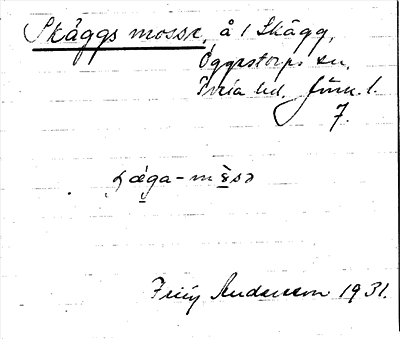 Skäggs mosse, å i Skägg,
Öggestorps sn.
Tveta hd. Jönk. l.
7.
Friij Andersson 1931.